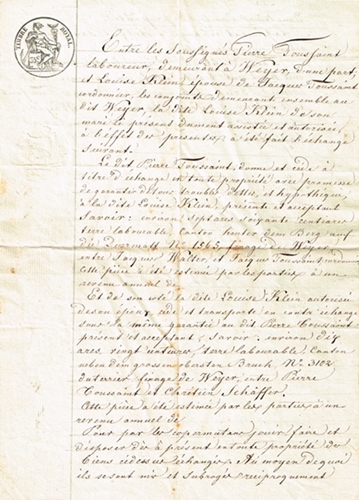 TIMBRE ROYAL
Entre les Soussignés Pierre Toussaint
laboureur, demeurant à Weyer, d'une part,
et Louise Klein, épouse de Jacques Toussaint
cordonnier, les conjoints demeurant ensemble au
dit Weyer, la dite Louise Klein de son
mari ici présent dument assistée et autorisée
à l'effet des présentes, a été fait l'échange
suivant.
Le dit Pierre Toussaint, donne et cède à
titre d'échange en toute propriété avec promesse
de garantir de tous troubles dettes, et hypothèques
à la dite Louise Klein, présente et acceptant
Savoir: environ sept ares soixante centiares
terre labourable Canton hinter dem Berg auf
No. 1565, finage de Weyer,
entre Jacques Walter, et Jacques Toussaint
Cette pièce a été estimée par les parties à un
revenu annuel de
Et de son coté la dite Louise Klein autorisée
de son époux cède et transporte en contr'échange
sous la même garantie au dit Pierre Toussaint
présent et acceptant, Savoir: environ dix
ares vingt centiares, terre labourable, Canton
neben dem grossen Bruch, No. 3102
finage de Weyer, entre Pierre
Toussaint et Chrétien Schäffer.
Cette pièce a été estimée par les parties à un
revenu annuel de
Pour par les copermutans jouir faire et
disposer dès à présent en toute propriété des
biens cédés en échange. Au moyen de quoi
ils se sont mis et subrogés réciproquement